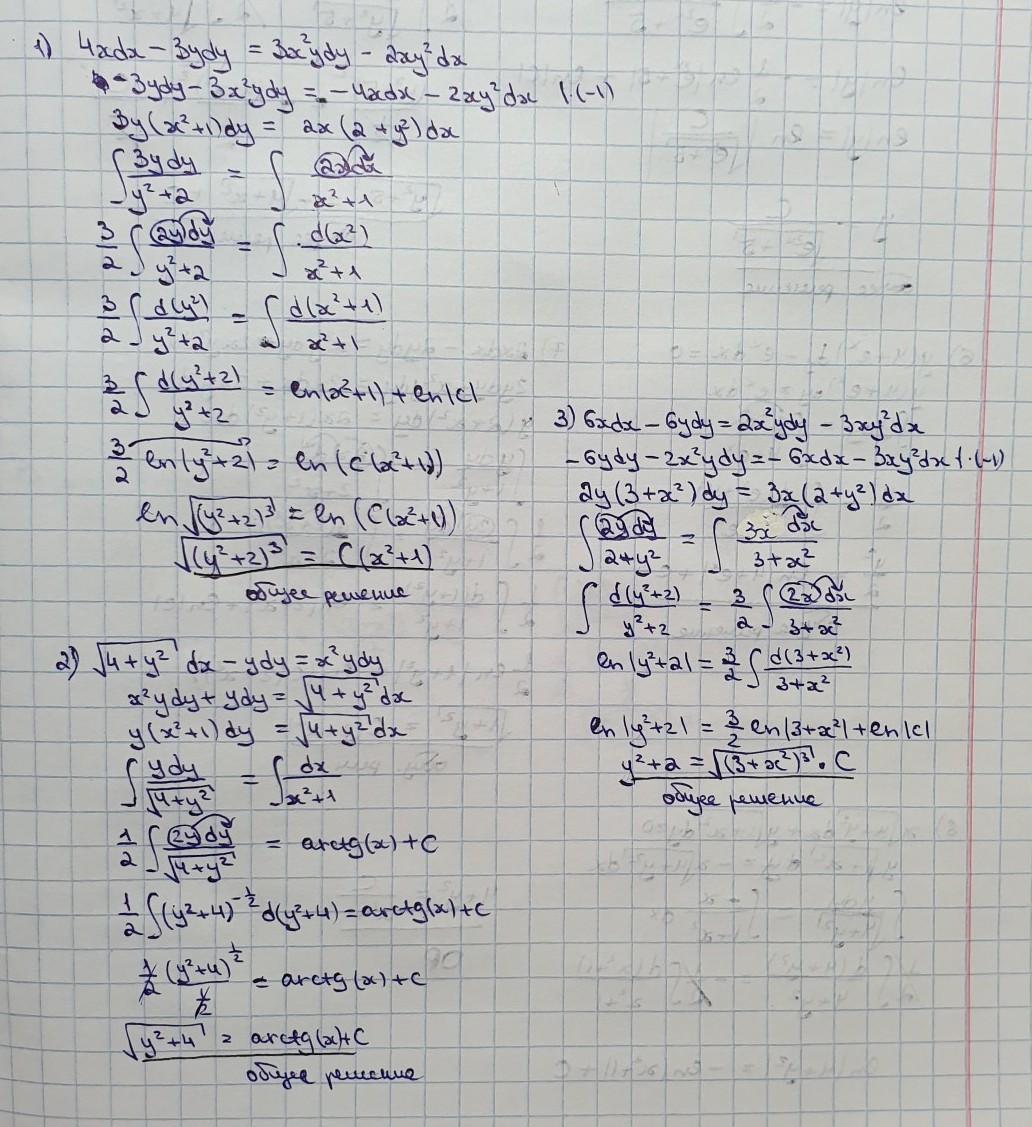 1) 4xdx − 3ydy = 3x²ydy − 2xy²dx
− 3ydy − 3x²ydy = − 4xdx − 2xy²dx | · (−1)
3y(x²+1)dy = 2x(2+y²)dx
∫ 3ydy / y²+2 = ∫ 2xdx / x²+1
3/2 ∫ 2ydy / y²+2 = ∫ d(x²) / x²+1
3/2 ∫ d(y²) / y²+2 = ∫ d(x²+1) / x²+1
3/2 ∫ d(y²+2) / y²+2 = ln(x²+1) + ln|c|
3/2 ln(y²+2) = ln(C(x²+1))
ln√(y²+2)³ = ln(C(x²+1))
√(y²+2)³ = C(x²+1)
общее решение
2) √4+y² dx − ydy = x²ydy
x²ydy + ydy = √4+y² dx
y(x²+1)dy = √4+y² dx
∫ ydy / √4+y² = ∫ dx / x²+1
1/2 ∫ 2ydy / √4+y² = arctg(x) + C
1/2 ∫ (y²+4)^(-1/2) d(y²+4) = arctg(x) + C
1/2 (y²+4)^(1/2) / 1/2 = arctg(x) + C
√y²+4 = arctg(x) + C
общее решение
3) 6xdx − 6ydy = 2x²ydy − 3xy²dx
− 6ydy − 2x²ydy = − 6xdx − 3xy²dx | · (−1)
2y(3+x²)dy = 3x(2+y²)dx
∫ 2ydy / 2+y² = ∫ 3x dx / 3+x²
∫ d(y²+2) / y²+2 = 3/2 ∫ 2xdx / 3+x²
ln|y²+2| = 3/2 ∫ d(3+x²) / 3+x²
ln|y²+2| = 3/2 ln|3+x²| + ln|c|
y²+2 = √(3+x²)³ · C
общее решение